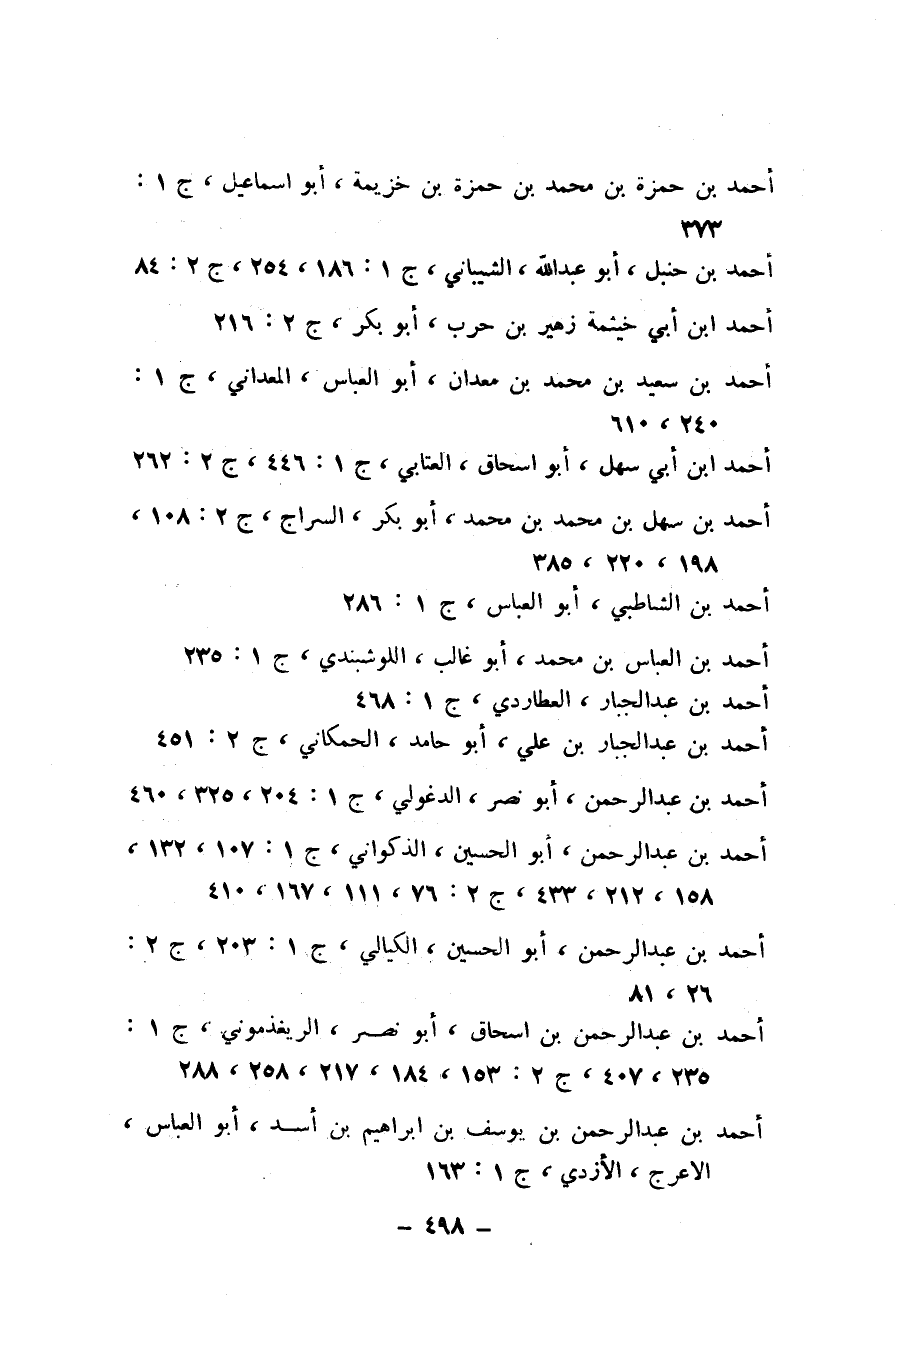 أحمد بن حمزة بن محمد بن حمزة بن خزيمة ، أبو اسماعيل ، ج ١ :
٣٧٣
أحمد بن حنبل ، أبو عبدالله ، الشيباني ، ج ١ : ١٨٦ ، ٢٥٤ ، ج ٢ : ٨٤
أحمد ابن أبي خيثمة زهير بن حرب ، أبو بكر ، ج ٢ : ٢١٦
أحمد بن سعيد بن محمد بن معدان ، أبو العباس ، المعداني ، ج ١ :
٢٤٠ ، ٦١٠
أحمد ابن أبي سهل ، أبو اسحاق ، العتابي ، ج ١ : ٤٤٦ ، ج ٢ : ٢٦٢
أحمد بن سهل بن محمد بن محمد ، أبو بكر ، السراج ، ج ٢ : ١٠٨ ،
١٩٨ ، ٢٢٠ ، ٣٨٥
أحمد بن الشاطبي ، أبو العباس ، ج ١ : ٢٨٦
أحمد بن العباس بن محمد ، أبو غالب ، اللوشبندي ، ج ١ : ٢٣٥
أحمد بن عبدالجبار ، العطاردي ، ج ١ : ٤٦٨
أحمد بن عبدالجبار بن علي ، أبو حامد ، الحمكاني ، ج ٢ : ٤٥١
أحمد بن عبدالرحمن ، أبو نصر ، الدغولي ، ج ١ : ٢٠٤ ، ٣٢٥ ، ٤٦٠
أحمد بن عبدالرحمن ، أبو الحسين ، الذكواني ، ج ١ : ١٠٧ ، ١٣٢ ،
١٥٨ ، ٢١٢ ، ٤٣٣ ، ج ٢ : ٧٦ ، ١١١ ، ١٦٧ ، ٤١٠
أحمد بن عبدالرحمن ، أبو الحسين ، الكيالي ، ج ١ : ٢٠٣ ، ج ٢ :
٢٦ ، ٨١
أحمد بن عبدالرحمن بن اسحاق ، أبو نصر ، الريغذموني ، ج ١ :
٢٣٥ ، ٤٠٧ ، ج ٢ : ١٥٣ ، ١٨٤ ، ٢١٧ ، ٢٥٨ ، ٢٨٨
أحمد بن عبدالرحمن بن يوسف بن ابراهيم بن أسد ، أبو العباس ،
الاعرج ، الأزدي ، ج ١ : ١٦٣
- ٤٩٨ -